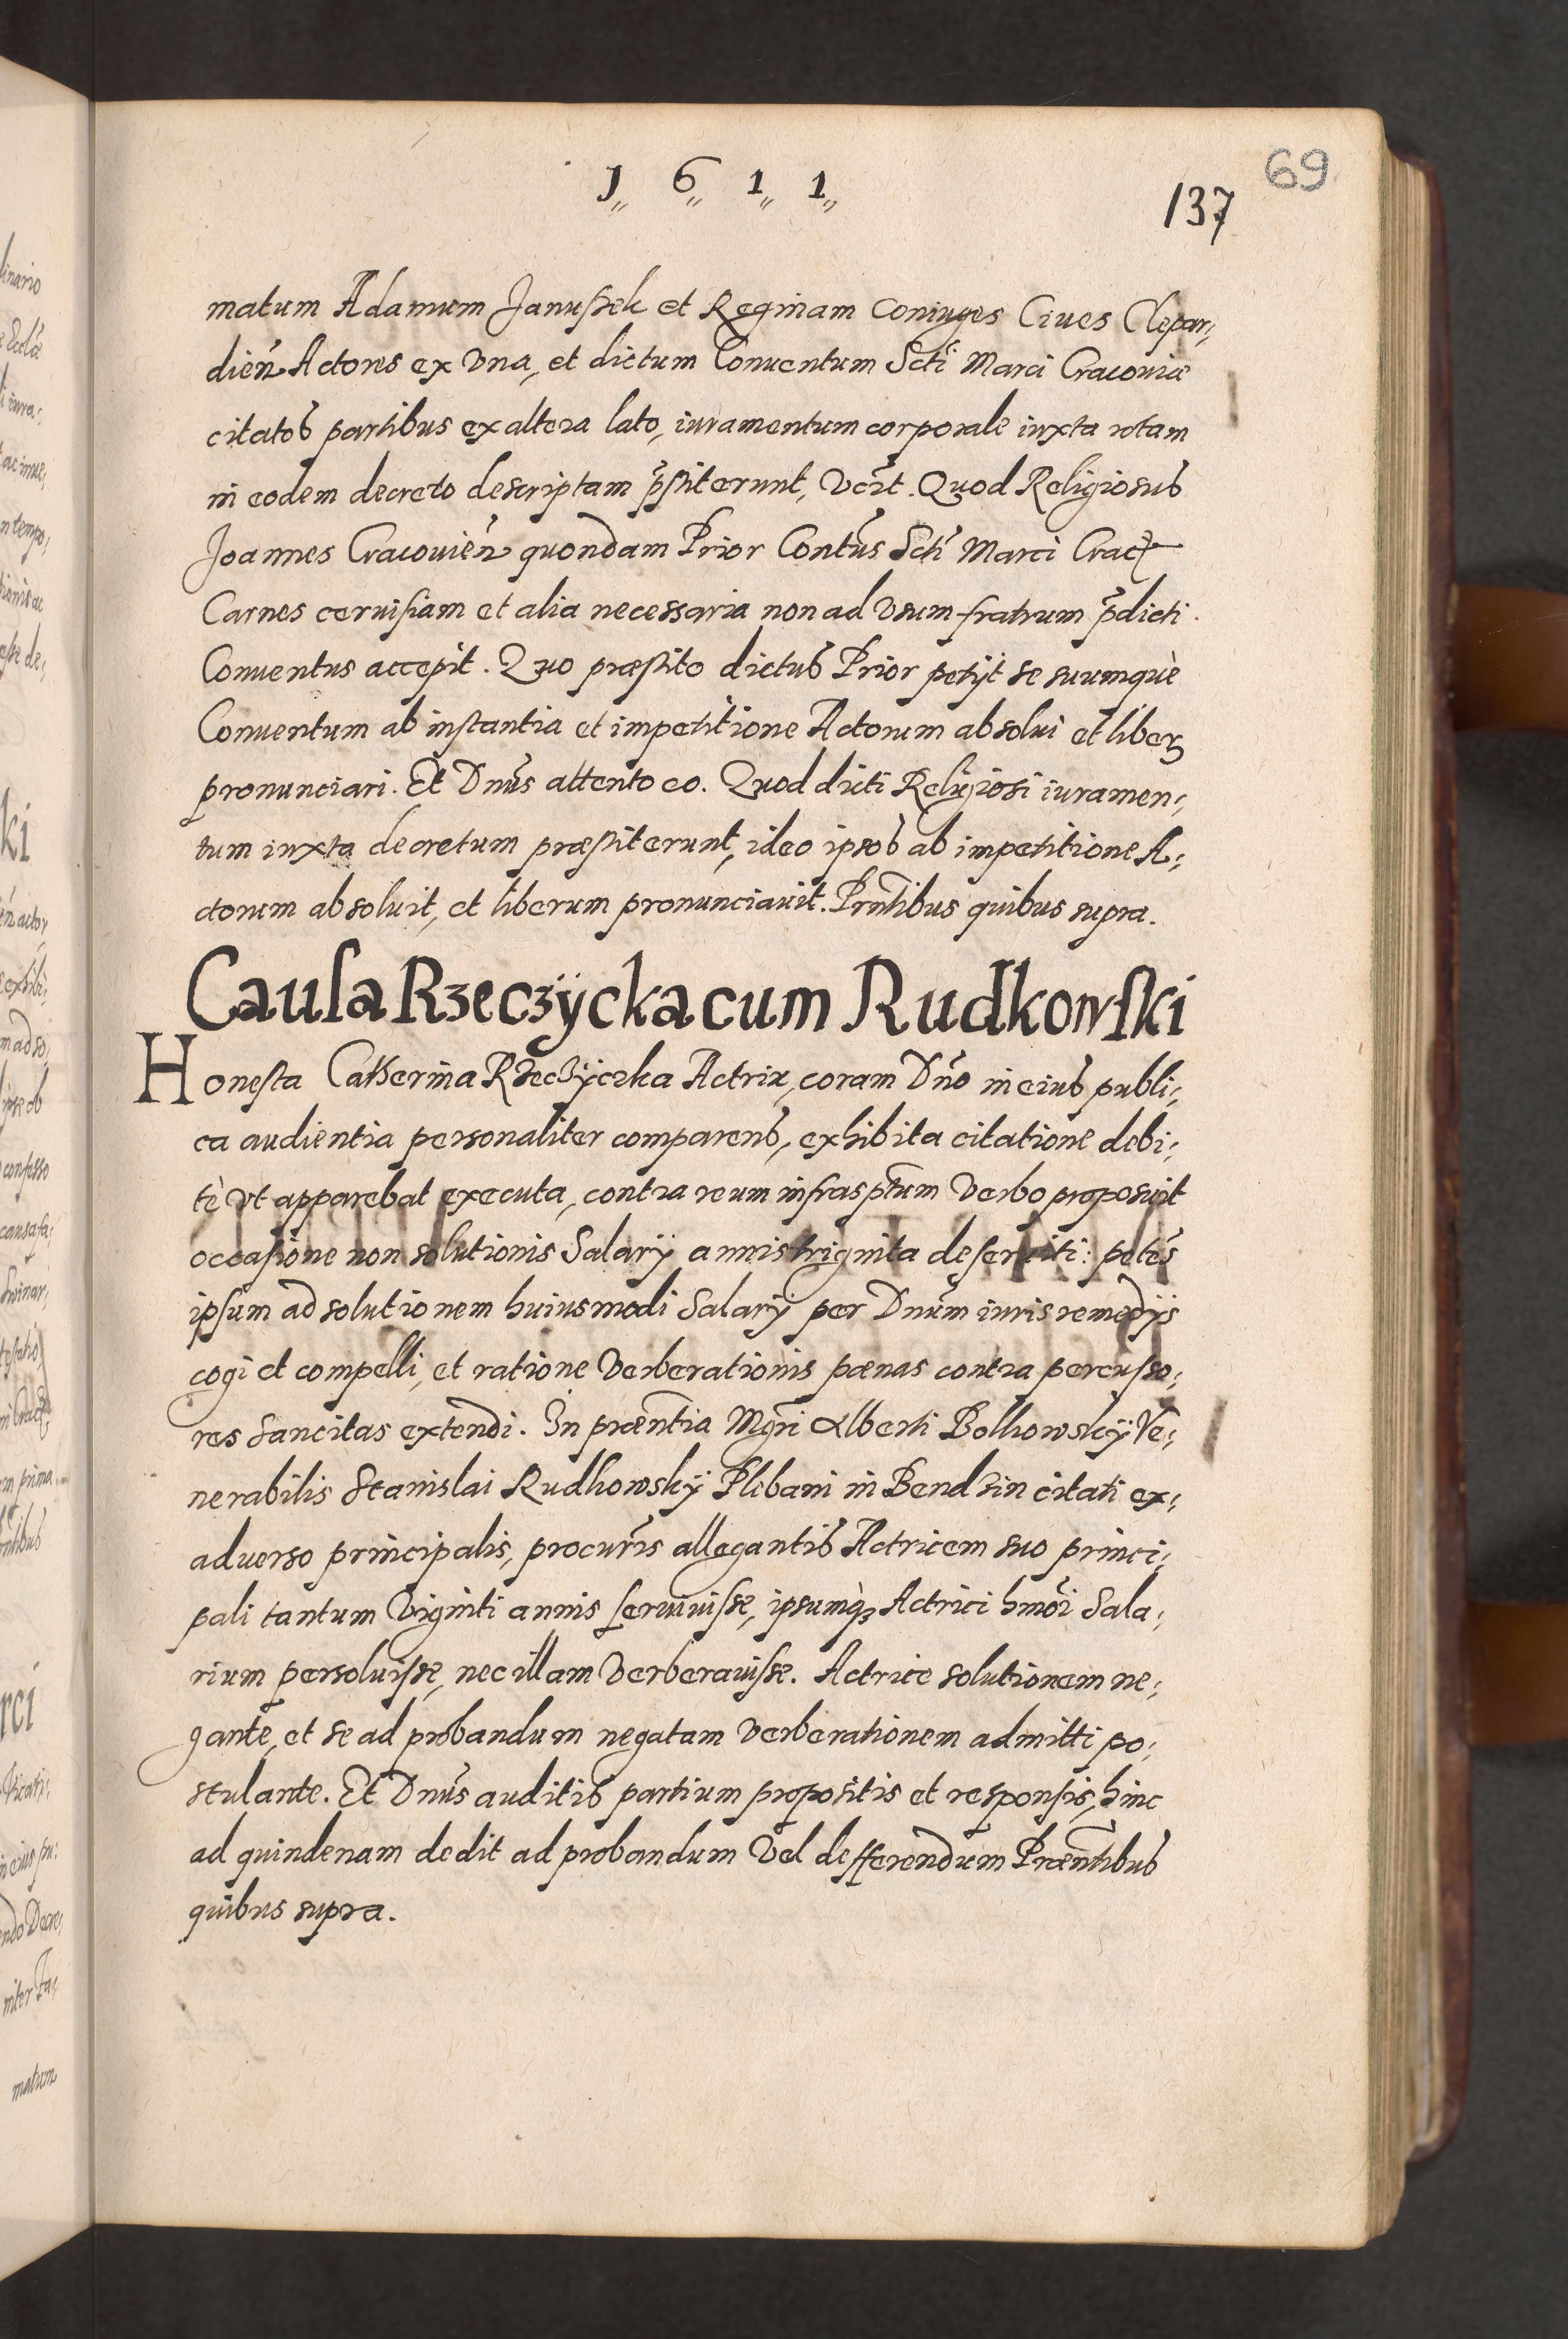 1 6 1 1
69
137
matum Adamum Janussek et Reginam Coniuges Ciues Clepar,,
dien̄ Actores ex Vna, et dictum Conuentum Scti Marci Cracouiæ
citatos partibus ex altera lato, iuramentum corporale iuxta rotam
in eodem decreto descriptam p̄stiterunt, Vc̄zt. Quod Religiosus
Joannes Cracouien̄ quondam Prior Contūs Scti Marci Crac
Carnes ceruisiam et alia necessaria non ad Vsum fratrum p̄dicti
Conuentus accepit. Quo præstito dictus Prior petijt se suumquè
Conuentum ab instantia et impetitione Actorum absolui et liber
pronunciari. Et Dnūs attento eo. Quod dicti Religiosi iuramen,,
tum iuxta decretum præstiterunt, ideo ipsos ab impetitione A,,
ctorum absoluit, et liberum pronunciauit. Prn̄tibus quibus supra.
Causa Rzeczÿcka cum Rudkowski
Honesta Catherina Rzeczÿczka Actrix, coram Dn̄o in eius publi,,
ca audientia personaliter comparens, exhibita citatione debi,,
tè vt apparebat executa, contra reum infrasptum Verbo proposuit
occasione non solutionis Salarÿ annis triginta deseruiti: petēs
ipsum ad solutionem huiusmodi Salarÿ per Dnūm iuris remedÿs
cogi et compelli, et ratione Verberationis pœnas contra percusso,,
res sancitas extendi. In præn̄tia Mgrī Alberti Bolkowskÿ Ve,,
nerabilis Stanislai Rudkowskÿ Plebani in Bendzin citati ex,,
aduerso principalis, procur̄is allegantis Actricem suo princi,,
pali tantum Viginti annis seruiuisse, ipsumq3 Actrici hmōi Sala,,
rium persoluisse, nec illam Verberauisse. Actrice solutionem ne,,
gante, et se ad probandum negatam Verberationem admitti po,,
stulante. Et Dnūs auditis partium propositis et responsis, hinc
ad quindenam dedit ad probandum Vel defferendum Præn̄tibus
quibus supra.